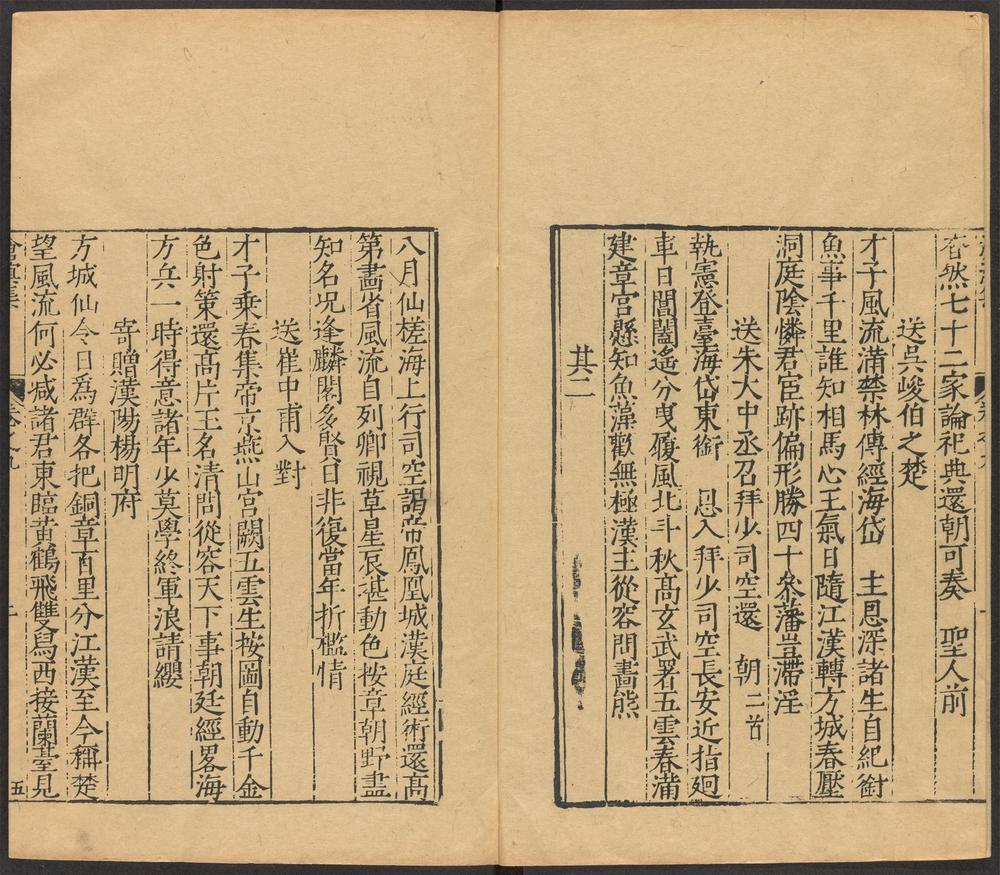 杳然七十二家論祀典還朝可奏　聖人前
送吳峻伯之楚
才子風流滿禁林傳經海岱　主恩深諸生自紀銜
魚事千里誰知相馬心王氣日隨江漢轉方城春壓
洞庭陰憐君宦跡偏形勝四十叅藩豈滯淫
送朱大中丞召拜少司空還　朝二首
執憲登臺海岱東銜　恩入拜少司空長安近指廻
車日閶闔遙分曳履風北斗秋高玄武署五雲春滿
建章宮懸知魚藻歡無極漢主從容問畫熊
其二
八月仙槎海上行司空謁帝鳳凰城漢庭經術還高
第畫省風流自列卿視草星辰堪動色按章朝野盡
知名況逢麟閣多賢日非復當年折檻情
送崔中甫入對
才子乘春集帝京燕山宮闕五雲生按圖自動千金
色射策還高片玉名清問從容天下事朝廷經畧海
方兵一時得意諸年少莫學終軍浪請纓
寄贈漢陽楊明府
方城仙令日爲群各把銅章百里分江漢至今稱楚
望風流何必減諸君東臨黃鶴飛雙舄西接蘭臺見
卷之九
五